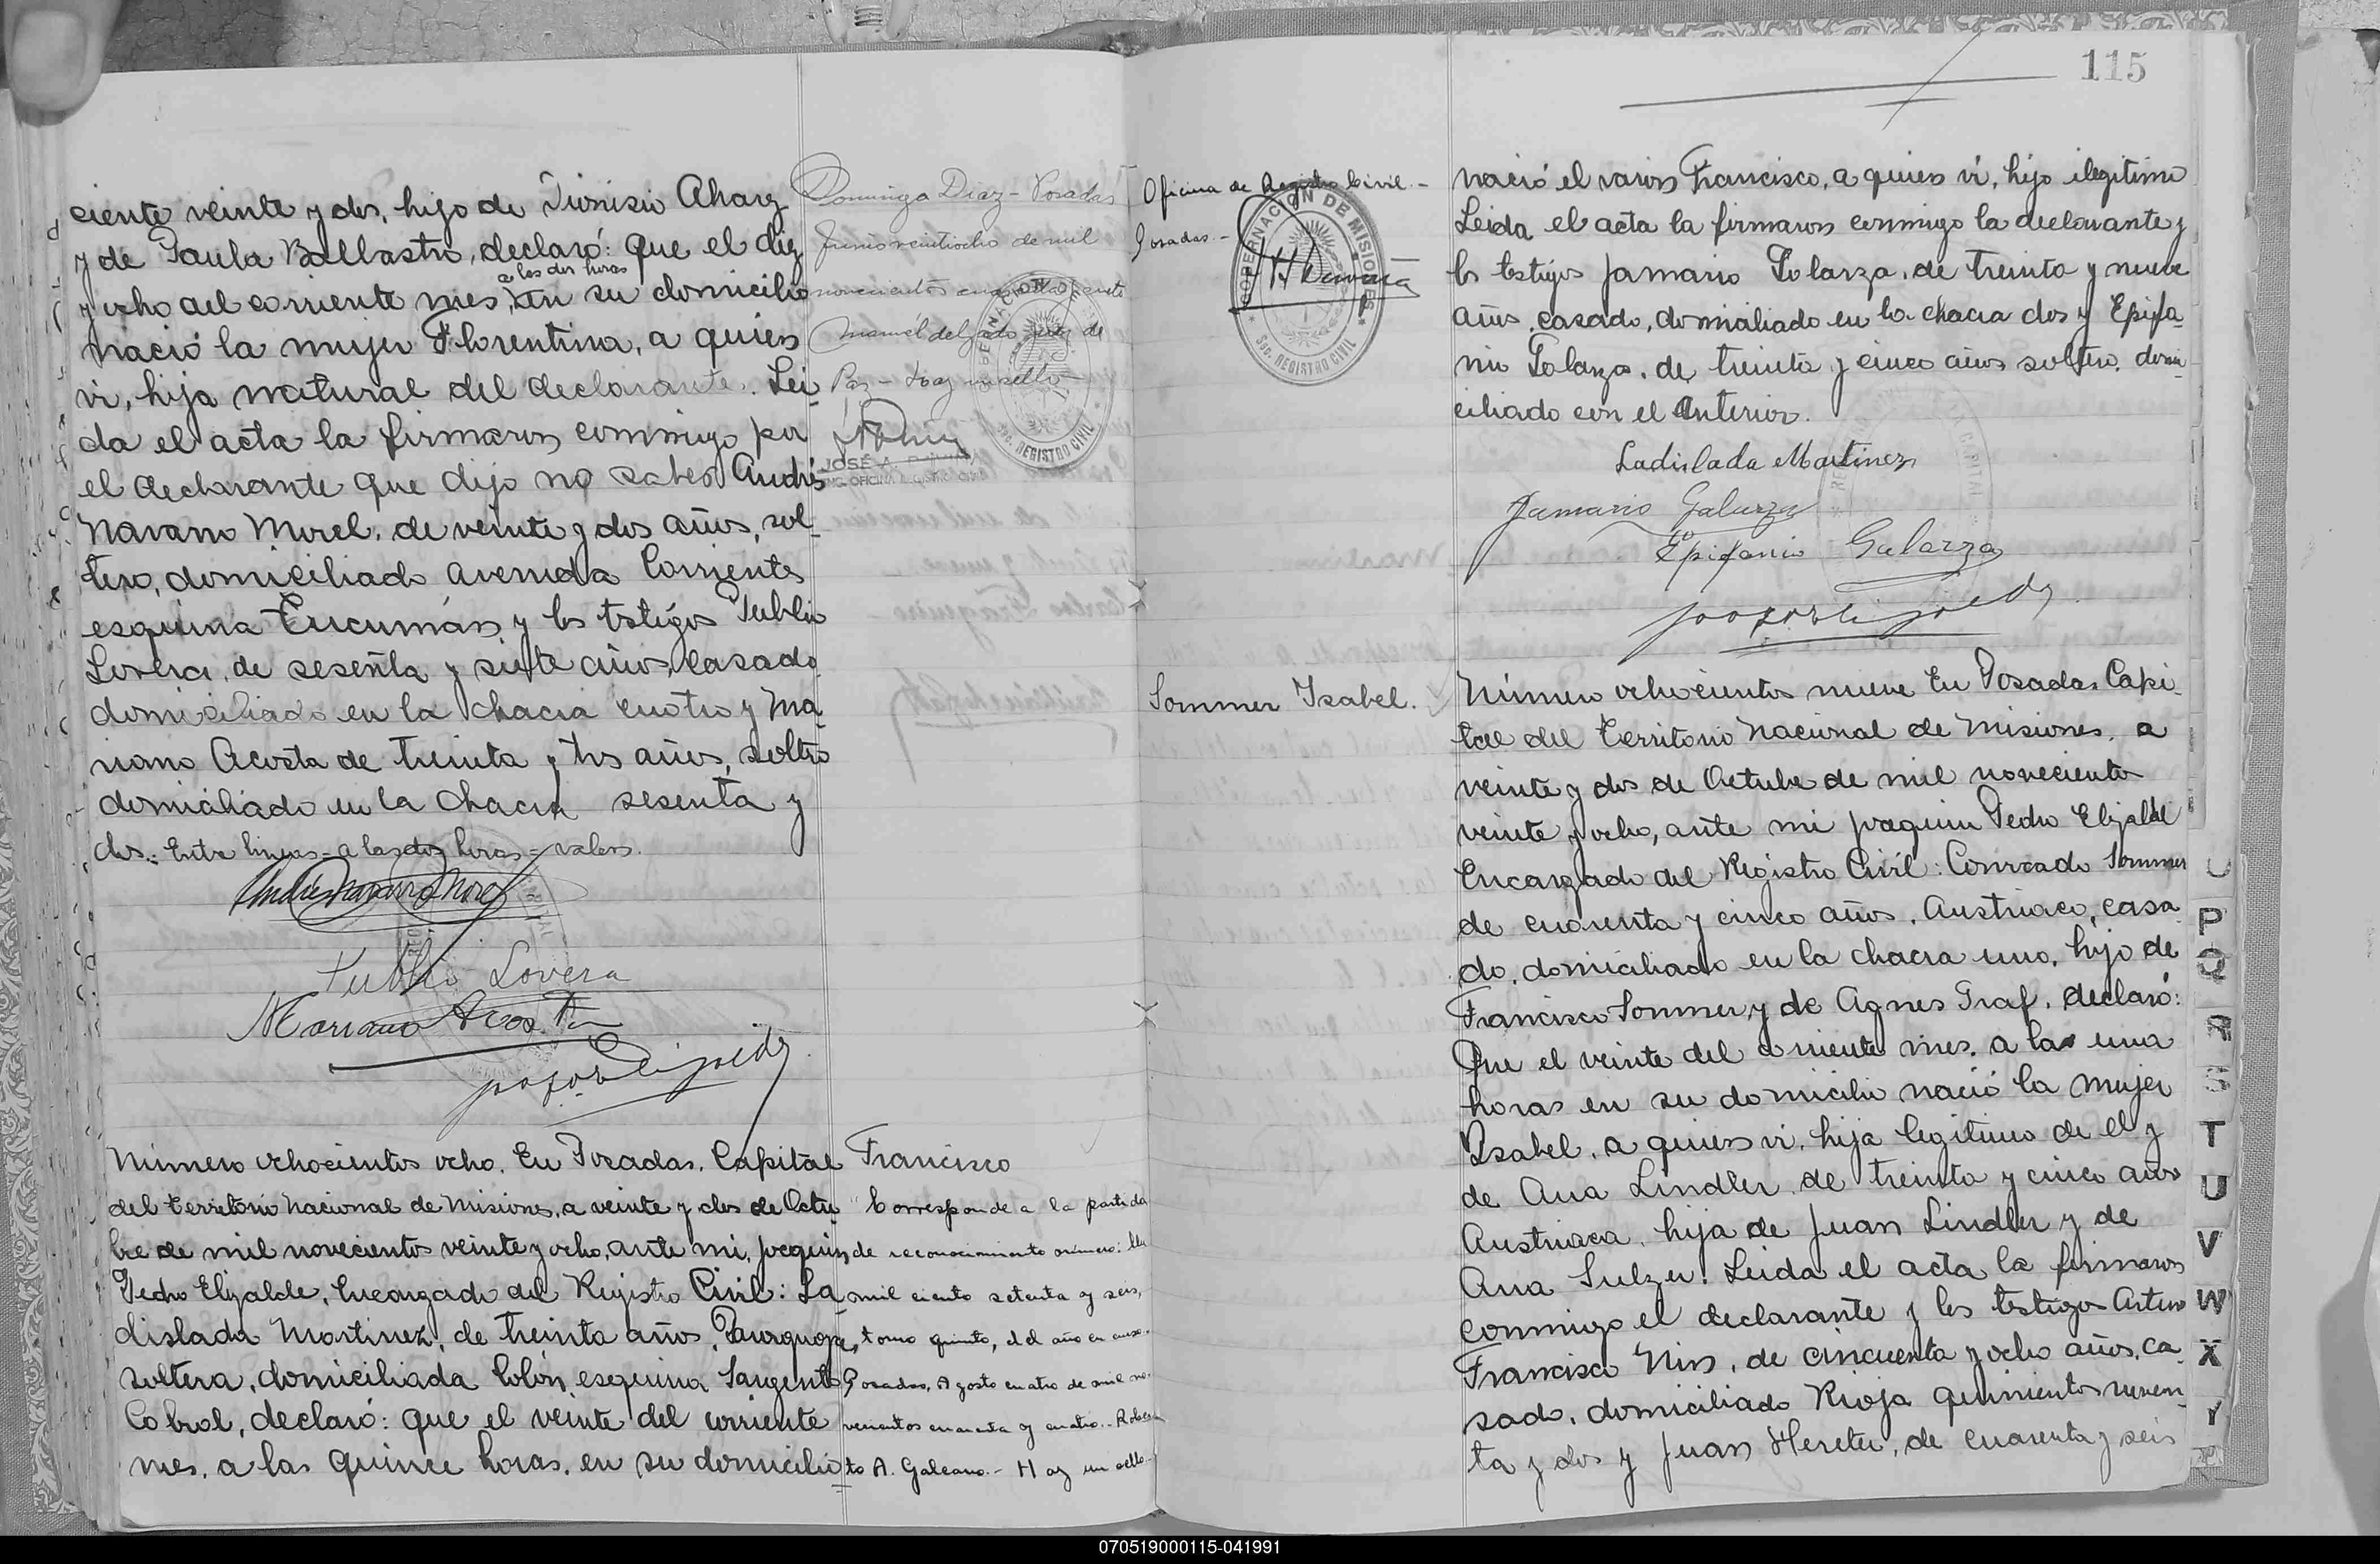 ciente veinte y dos, hijo de Dionisio Aharz
y de Paula Ballastro, declaró: que el diez
a las dos horas
y ocho del corriente mes, en su domicilio
nació la mujer Florentina, a quien
vi, hija natural del declarante. Lei
da el acta la firmaron conmigo por
el declarante que dijo no saber Andrés
Navarro Morel, de veinte y dos años, sol
tero, domiciliado Avenida Corrientes
esquina Tucumán y los testigos Publio
Lovera, de sesenta y siete años, casado
domiciliado en la chacra cuatro y Ma
riano Acosta de treinta y tres años, soltero
domiciliado en la chacra sesenta y
dos.- Entre lineas = a las dos horas = valen.
Andrés Navarro Morel
Publio Lovera
Mariano Acosta
Domingo Diaz - Posadas
Junio veintiocho de mil
novecientos
Manuel delgado juez de
Paz - Hay un sello
JOSÉ A.
REGISTRO CIVIL
Número ochocientos ocho. En Posadas, Capital
del Territorio Nacional de Misiones, a veinte y dos de Octu
bre de mil novecientos veinte y ocho, ante mi, Joaquin
Pedro Elizalde, Encargado del Registro Civil: La
dislada Martinez, de treinta años, Paraguaya,
soltera, domiciliada Colón esquina Sargento
Cabral, declaró: que el veinte del corriente
mes, a las quince horas, en su domicilio
Francisco
Corresponde a la partida
de reconocimiento número:
mil ciento setenta y seis,
tomo quinto, del año en curso.
Posadas, Agosto cuatro de mil no
vecientos cuarenta y cuatro.- Rober
to A. Galeano.- Hay un sello.-
115
Oficina de Registro Civil.-
Posadas.-
GOBERNACIÓN DE MISIONES
Sec. REGISTRO CIVIL
nació el varon Francisco, a quien vi, hijo ilegitimo
Leida el acta la firmaron conmigo la declarante y
los testigos Jamario Galarza, de treinta y nueve
años, casado, domiciliado en la chacra dos y Epifa
nio Galarza, de treinta y cinco años soltero, domi
ciliado con el anterior.
Ladislada Martinez
Jamario Galarza
Epifanio Galarza
Sommer Isabel.
Número ochocientos nueve En Posadas, Capi
tal del Territorio Nacional de Misiones, a
veinte y dos de Octubre de mil novecientos
veinte y ocho, ante mi Joaquin Pedro Elizalde
Encargado del Registro Civil: Conrado Sommer
de cuarenta y cinco años, Austriaco, casa
do, domiciliado en la chacra uno, hijo de
Francisco Sommer y de Agnes Graf, declaró:
Que el veinte del corriente mes, a la una
horas en su domicilio nació la mujer
Isabel, a quien vi, hija legitima de el y
de Ana Lindler de treinta y cinco años
Austriaca, hija de Juan Lindler y de
Ana Sulzer. Leida el acta la firmaron
conmigo el declarante y los testigos Arturo
Francisco Nin, de cincuenta y ocho años, ca
sado, domiciliado Rioja quinientos noven
ta y dos y Juan Hereter, de cuarenta y seis
P
Q
R
S
T
U
V
W
X
Y
070519000115-041991